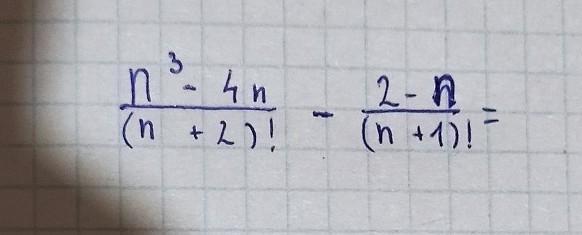 n³ - 4n / (n + 2)! - 2 - n / (n + 1)! =